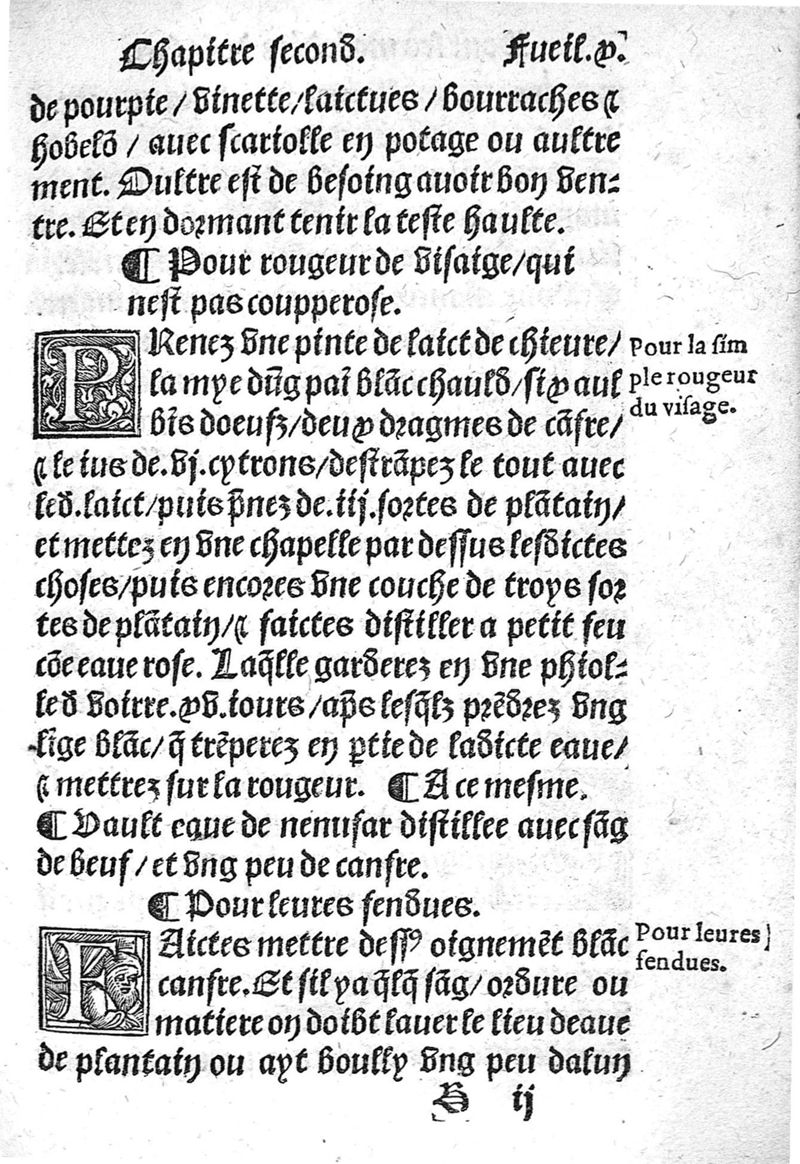 Chapitre second. Fueil.x.
de pourpie/vinette/laictues/bourraches &
hobelõ/ avec scariolle en potage ou aultre
ment. Oultre est de besoing avoir bon ven⸗
tre. Et en dormant tenir la teste haulte.
¶ Pour rougeur de visaige/qui
nest pas coupperose.
PRenez vne pinte de laict de chieure/
la mye dũg paĩ blãc chauld/six aul
bĩs doeufz/deux dragmes de cãfre/
& le ius de.vj.cytrons/destrãpez le tout avec
led.laict/puis p̃nez de.iij.sortes de plãtain/
et mettez en vne chapelle par dessus lesdictes
choses/puis encores vne couche de troys sor
tes de plãtain/& faictes distiller a petit feu
cõe eaue rose. Laq̃lle garderez en vne phiol⸗
le d voirre.xv.iours/ap̃s lesq̃lz prẽdrez vng
lĩge blãc/q̃ trẽperez en ꝑtie de ladicte eaue/
& mettrez sur la rougeur. ¶ A ce mesme.
¶ Vault eaue de nenufar distillee avec sãg
de beuf/et vng peu de canfre.
¶ Pour leures fendues.
FAictes mettre dessꝰ oignemẽt blãc
canfre. Et sil y a q̃lq̃ sãg/ordure ou
matiere on doibt laver le lieu deaue
de plantain ou ayt boully vng peu dalun
B ij
Pour la sim
ple rougeur
du visage.
Pour leures
fendues.